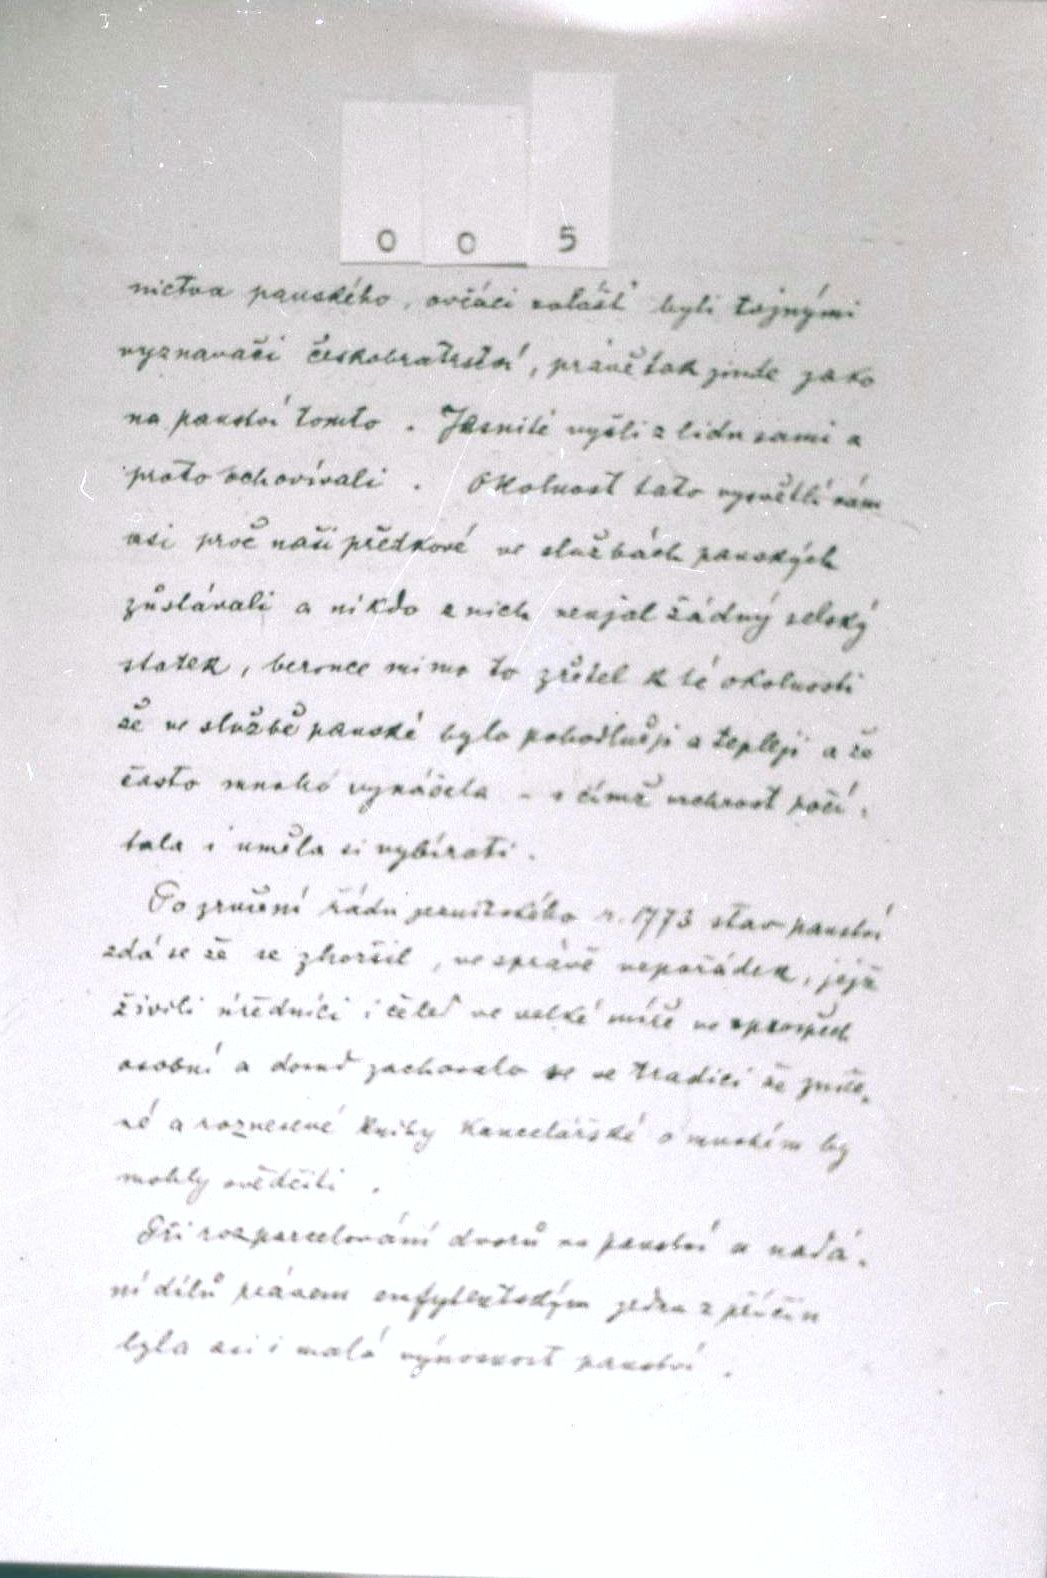 0 0 5
nictva panského, ovčáci zvlášť byli tajnými
vyznavači českobratrství, právě tak jinde jako
na panství tomto. Jesuité vyšli z lidu sami a
proto schovívali. Okolnost tato vysvětlí nám
asi proč naši předkové ve službách panských
zůstávali a nikdo z nich neujal žádný selský
statek, berouce mimo to zřetel k té okolnosti
že ve službě panské bylo pohodlněji a tepleji a že
často mnoho vynášela – s čímž vrchnost počí-
tala i uměla si vybírati.
Po zrušení řádu jesuitského r. 1773 stav panství
zdá se že se zhoršil, ve správě nepořádek, jejž
živili úředníci i čeleď ve velké míře ve prospěch
osobní a domů zachovalo se ve tradici že zniče-
né a roznesené knihy kancelářské o mnohém by
mohly svědčiti.
Při rozparcelování dvorů na panství a nadá-
ní dílů právem emfyteutským jedna z příčin
byla asi i malá výnosnost panství.